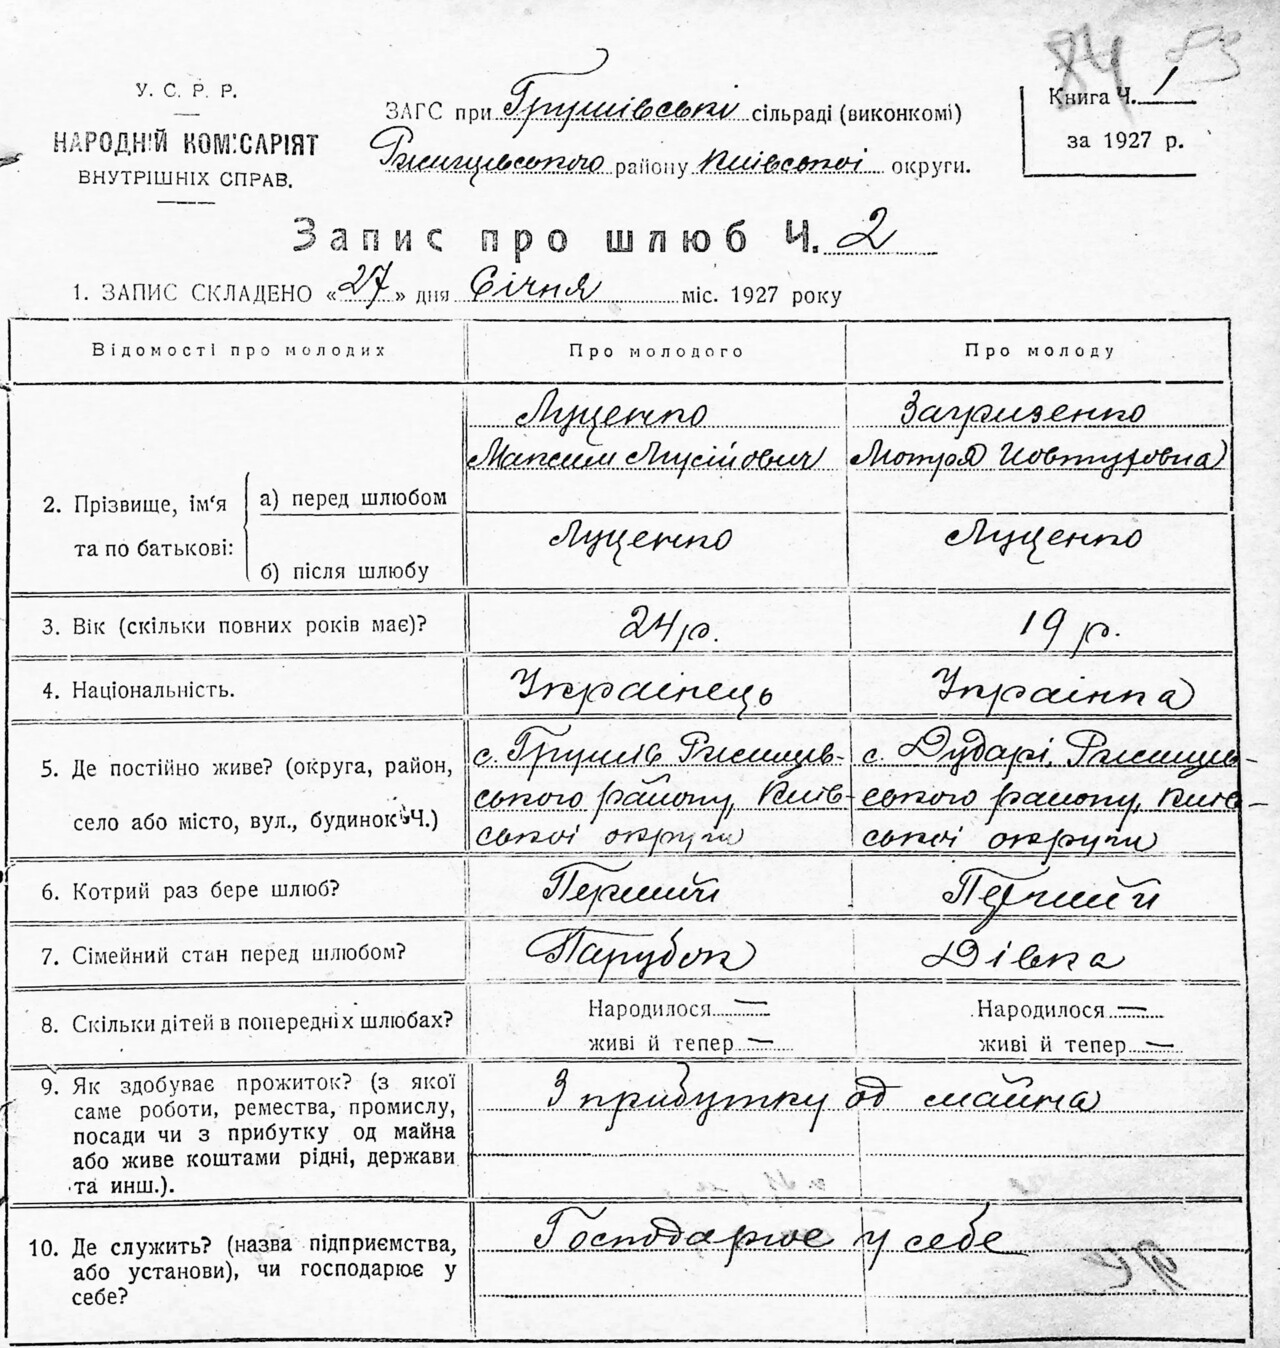 84 83
У. С. Р. Р.
НАРОДНІЙ КОМІСАРІЯТ
ВНУТРІШНІХ СПРАВ.
ЗАГС при Грушівські сільраді (виконкомі)
Ржищівського району Київської округи.
Книга Ч. 1
за 1927 р.
Запис про шлюб Ч. 2
1. ЗАПИС СКЛАДЕНО «27» дня Січня міс. 1927 року
Відомості про молодих
Про молодого
Про молоду
2. Прізвище, ім‘я
та по батькові:
а) перед шлюбом
Луценко
Максим Мусійович
Загризенко
Мотря Човтуховна
б) після шлюбу
Луценко
Луценко
3. Вік (скільки повних років має)?
24 р.
19 р.
4. Національність.
Українець
Українка
5. Де постійно живе? (округа, район,
село або місто, вул., будинок Ч.)
с. Грушів Ржищів-
ського району, Київ-
ської округи
с. Дударі, Ржищів-
ського району, Київ-
ської округи
6. Котрий раз бере шлюб?
Перший
Перший
7. Сімейний стан перед шлюбом?
Парубок
Дівка
8. Скільки дітей в попередніх шлюбах?
Народилося —
живі й тепер —
Народилося —
живі й тепер —
9. Як здобуває прожиток? (з якої
саме роботи, ремества, промислу,
посади чи з прибутку од майна
або живе коштами рідні, держави
та инш.).
З прибутку од майна
10. Де служить? (назва підприємства,
або установи), чи господарює у
себе?
Господарює у себе